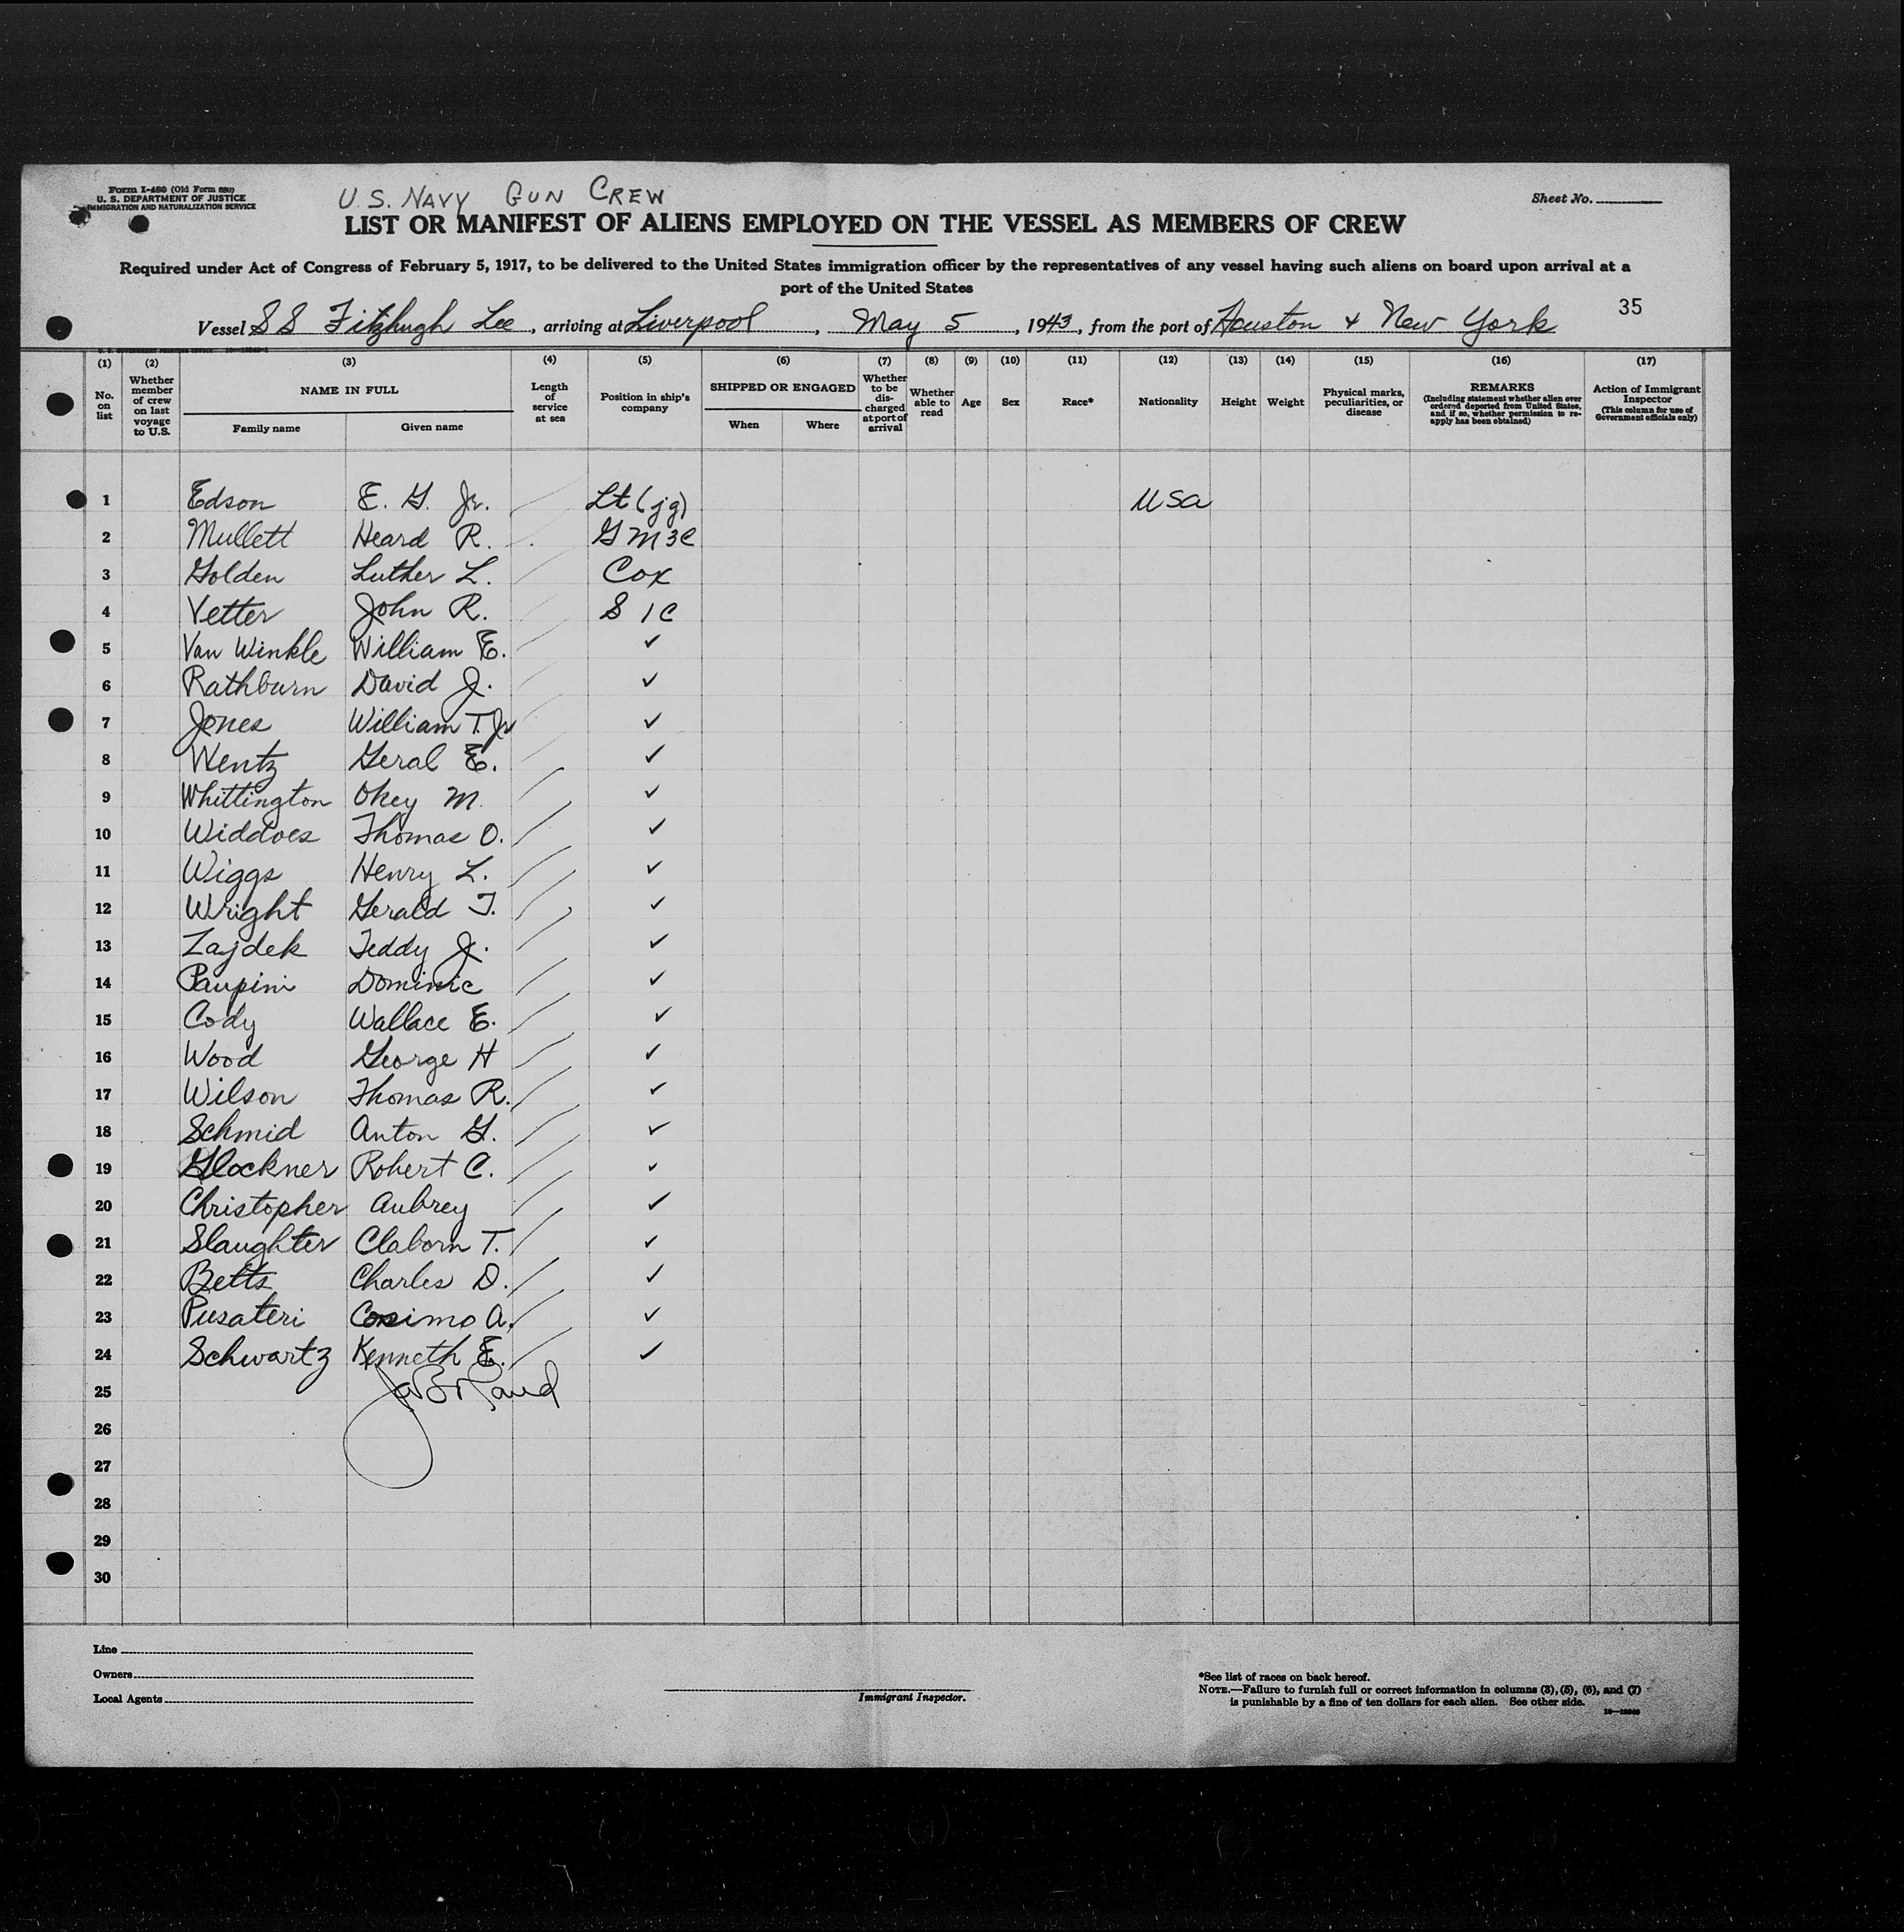 Form I-480 (Old Form 680)
U. S. DEPARTMENT OF JUSTICE
IMMIGRATION AND NATURALIZATION SERVICE
U.S. NAVY GUN CREW
Sheet No.
LIST OR MANIFEST OF ALIENS EMPLOYED ON THE VESSEL AS MEMBERS OF CREW
Required under Act of Congress of February 5, 1917, to be delivered to the United States immigration officer by the representatives of any vessel having such aliens on board upon arrival at a
port of the United States
35
Vessel SS Fitzhugh Lee, arriving at Liverpool, May 5, 1943, from the port of Houston & New York
(1) (2) (3) (4) (5) (6) (7) (8) (9) (10) (11) (12) (13) (14) (15) (16) (17)
No. on list
Whether member of crew on last voyage to U.S.
NAME IN FULL
Family name Given name
Length of service at sea
Position in ship's company
SHIPPED OR ENGAGED
When Where
Whether to be discharged at port of arrival
Whether able to read
Age
Sex
Race*
Nationality
Height
Weight
Physical marks, peculiarities, or disease
REMARKS
(Including statement whether alien ever ordered deported from United States, and if so, whether permission to re-apply has been obtained)
Action of Immigrant Inspector
(This column for use of Government officials only)
1 Edson E. G. Jr. Lt (jg) USA
2 Mullett Heard R. GM3C
3 Golden Luther L. Cox
4 Vetter John R. S 1C
5 Van Winkle William E. ✓
6 Rathburn David J. ✓
7 Jones William T. Jr ✓
8 Wentz Geral E. ✓
9 Whittington Okey M. ✓
10 Widdoes Thomas O. ✓
11 Wiggs Henry L. ✓
12 Wright Gerald T. ✓
13 Zajdek Teddy J. ✓
14 Paupini Dominic ✓
15 Cody Wallace E. ✓
16 Wood George H ✓
17 Wilson Thomas R. ✓
18 Schmid Anton G. ✓
19 Glockner Robert C. ✓
20 Christopher Aubrey ✓
21 Slaughter Claborn T. ✓
22 Betts Charles D. ✓
23 Pusateri Cosimo A. ✓
24 Schwartz Kenneth E. ✓
25
26
27
28
29
30
Line
Owners
Local Agents
Immigrant Inspector.
*See list of races on back hereof.
NOTE.—Failure to furnish full or correct information in columns (3), (5), (6), and (7)
is punishable by a fine of ten dollars for each alien. See other side.